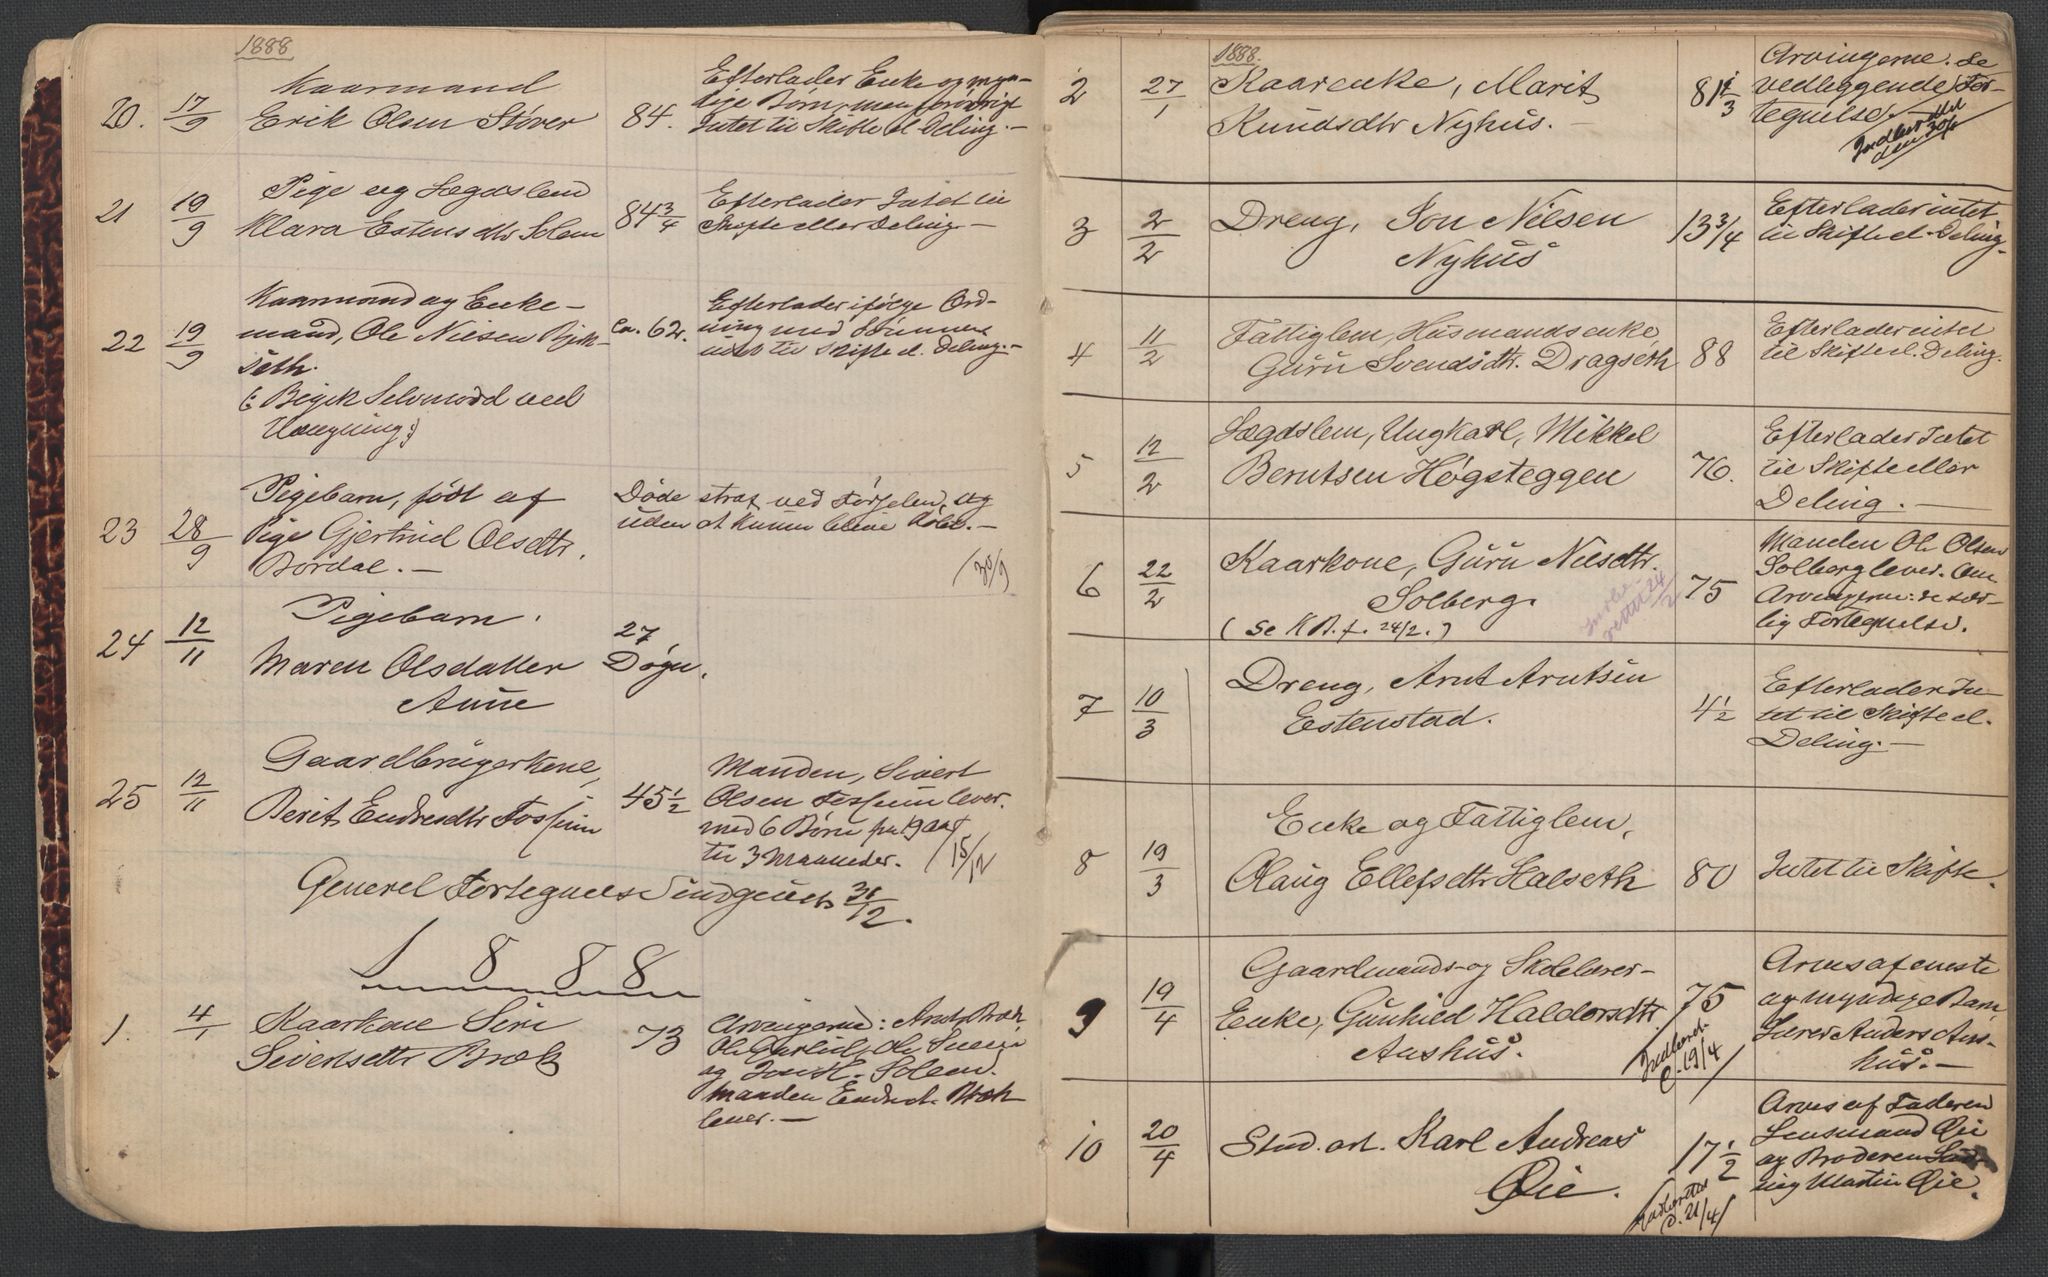 1888
Kaarmand
20. 17/9 Erik Olsen Støver 84. Efterlader Enke og myn-
dige Børn, men forøvrigt
Intet til Skifte el. Deling. —
Pige og Lægdslem
21 19/9 Klara Estensdtr Solem 84 3/4 Efterlader Intet til
Skifte eller Deling —
Kaarmand og Enke-
22 19/9 mand, Ole Nilsen Bjørk-
seth. Ca. 62. Efterlader ifølge Ord-
ning med Sønnen
intet til Skifte el. Deling. —
(: Begik Selvmord ved
Hængning :)
23 28/9 Pigebarn, født af
Pige Gjertrud Olsdtr.
Bordal. — Døde strax ved Fødselen, og
uden at kunne blive døbt. —
/30/9
Pigebarn.
24 12/11 Maren Olsdatter
Aune 27
Døgn.
Gaardbrugerkone,
25 12/11 Berit Endresdtr Fossum 45 1/2 Manden, Sivert
Olsen Fossum lever.
med 6 Børn fra 19 Aar
til 3 Maaneder. /15/12
Generel Fortegnelse indgivet 31/12.
1888
1. 4/1 Kaarkone Siri
Sivertsdtr Bræk 73 Arvingerne: Arnt Bræk
Ole
og Solem.
Manden Endre Bræk
lever. —
1888.
2 27/1 Kaarenke, Marit
Knudsdtr Nyhus. — 81 1/3 Arvingerne. Se
vedleggende For-
tegnelse.
Indberettet
den 30/1
3 2/2 Dreng, Jon Nilsen
Nyhus 13 3/4 Efterlader intet
til Skifte el. Deling —
4 11/2 Fattiglem, Husmandsenke
Guru Svendsdtr. Dragseth 88 Efterlader intet
til Skifte el. Deling.
5 12/2 Lægdslem, Ungkarl, Mikkel
Berntsen Høgsteggen 76. Efterlader Intet
til Skifte eller
Deling. —
6 22/2 Kaarkone, Guru Nilsdtr.
Solberg.
(Se K B. f. 24/2.) 75 Manden Ole Olsen
Solberg lever. Om
Arvingerne: se sær-
lig Fortegnelse.
Indbe-
rettet 24/2
7 10/3 Dreng, Arnt Arntsen
Estenstad. 4 1/2 Efterlader In-
tet til Skifte el.
Deling. —
8 19/3 Enke og Fattiglem,
Olaug Ellefsdtr Halseth 80 Intet til Skifte.
9 19/4 Gaardmands- og Skolelærer-
Enke, Gunhild Haldorsdtr
Aashus. 75 Arves af eneste
og myndige Barn
Lærer Anders Aas-
hus. —
Indberet
d. 19/4
10 20/4 Stud. art. Karl Andreas
Øie. 17 1/2 Arves af Faderen
Lensmand Øie
og Broderen Lud-
vig Martin Øie.
Indberettet
d. 21/4